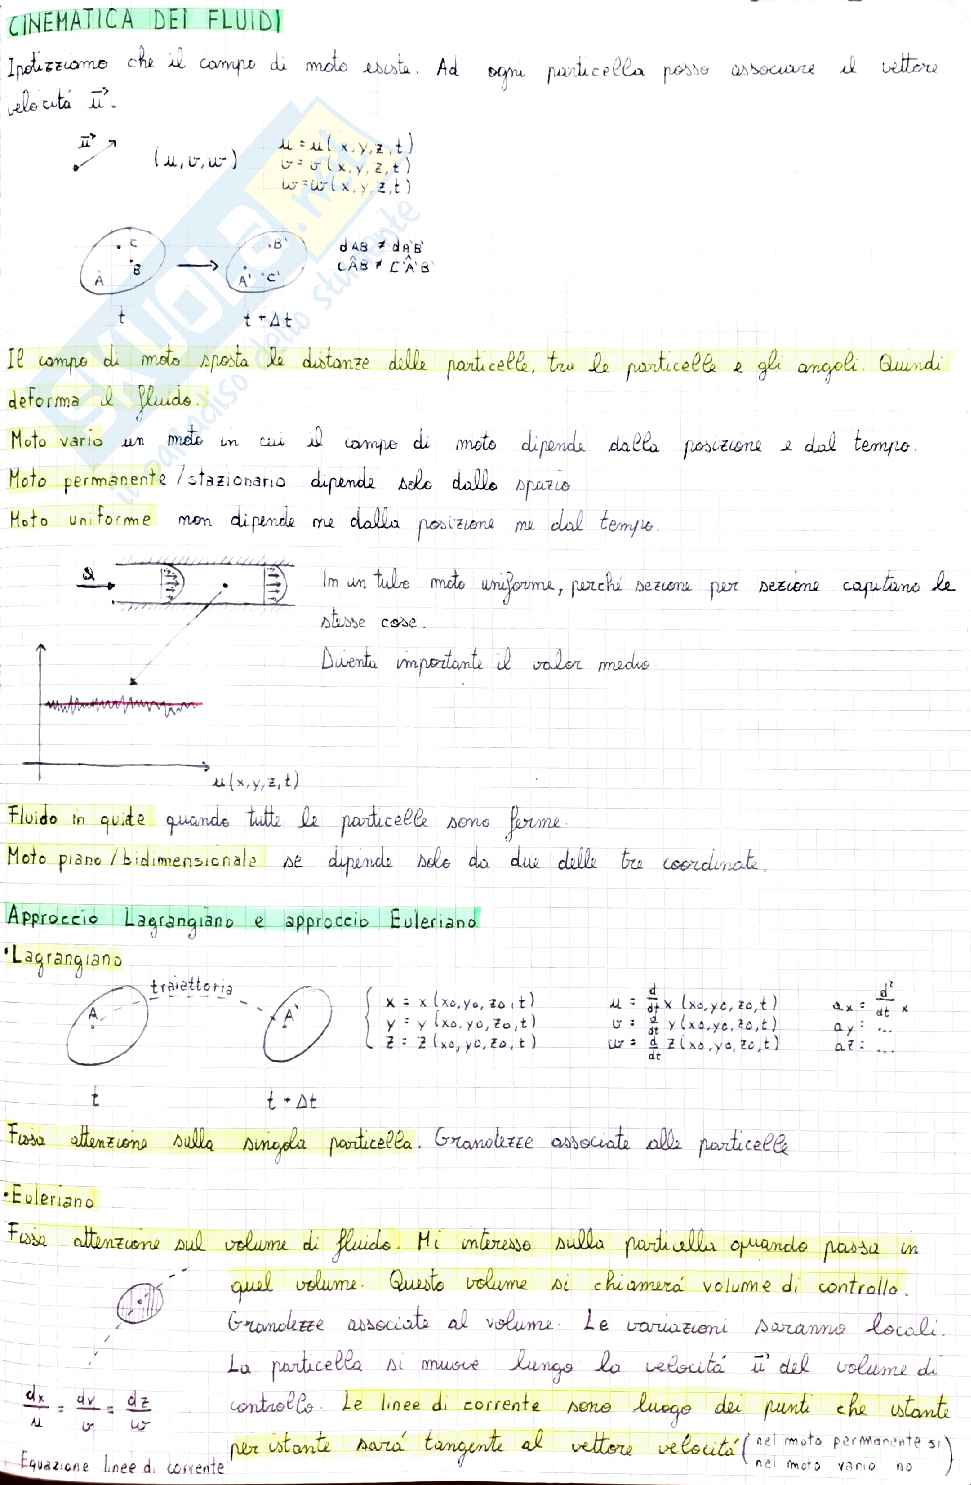 CINEMATICA DEI FLUIDI
Ipotizziamo che il campo di moto esiste. Ad ogni particella posso associare il vettore
velocitá u⃗.
u⃗ (u, v, w) u = u(x,y,z,t)
v = v(x,y,z,t)
w = w(x,y,z,t)
C B A B' A' C' dAB ≠ dA'B'
CÂB ≠ C'Â'B'
t t + Δt
Il campo di moto sposta le distanze delle particelle, tra le particelle e gli angoli. Quindi
deforma il fluido.
Moto vario un moto in cui il campo di moto dipende dalla posizione e dal tempo.
Moto permanente / stazionario dipende solo dallo spazio
Moto uniforme non dipende ne dalla posizione ne dal tempo.
Q In un tubo moto uniforme, perché sezione per sezione capitano le
stesse cose.
Diventa importante il valor medio
u(x,y,z,t)
Fluido in quite quando tutte le particelle sono ferme.
Moto piano / bidimensionale se dipende solo da due delle tre coordinate.
Approccio Lagrangiano e approccio Euleriano
• Lagrangiano
traiettoria
A A' x = x(x0,y0,z0,t) u = d/dt x(x0,y0,z0,t) ax = d²/dt x
y = y(x0,y0,z0,t) v = d/dt y(x0,y0,z0,t) ay: ...
z = z(x0,y0,z0,t) w = d/dt z(x0,y0,z0,t) az: ...
t t + Δt
Fissa attenzione sulla singola particella. Grandezze associate alle particelle
• Euleriano
Fissa attenzione sul volume di fluido. Mi interesso sulla particella quando passa in
quel volume. Questo volume si chiamerá volume di controllo.
Grandezze associate al volume. Le variazioni saranno locali.
La particella si muove lungo la velocitá u⃗ del volume di
controllo. Le linee di corrente sono luogo dei punti che istante
per istante sará tangente al vettore velocitá (nel moto permanente si
nel moto vario no)
dx/u = dv/v = dz/w
Equazione linee di corrente
SKUOLA.net
il paradiso dello studente